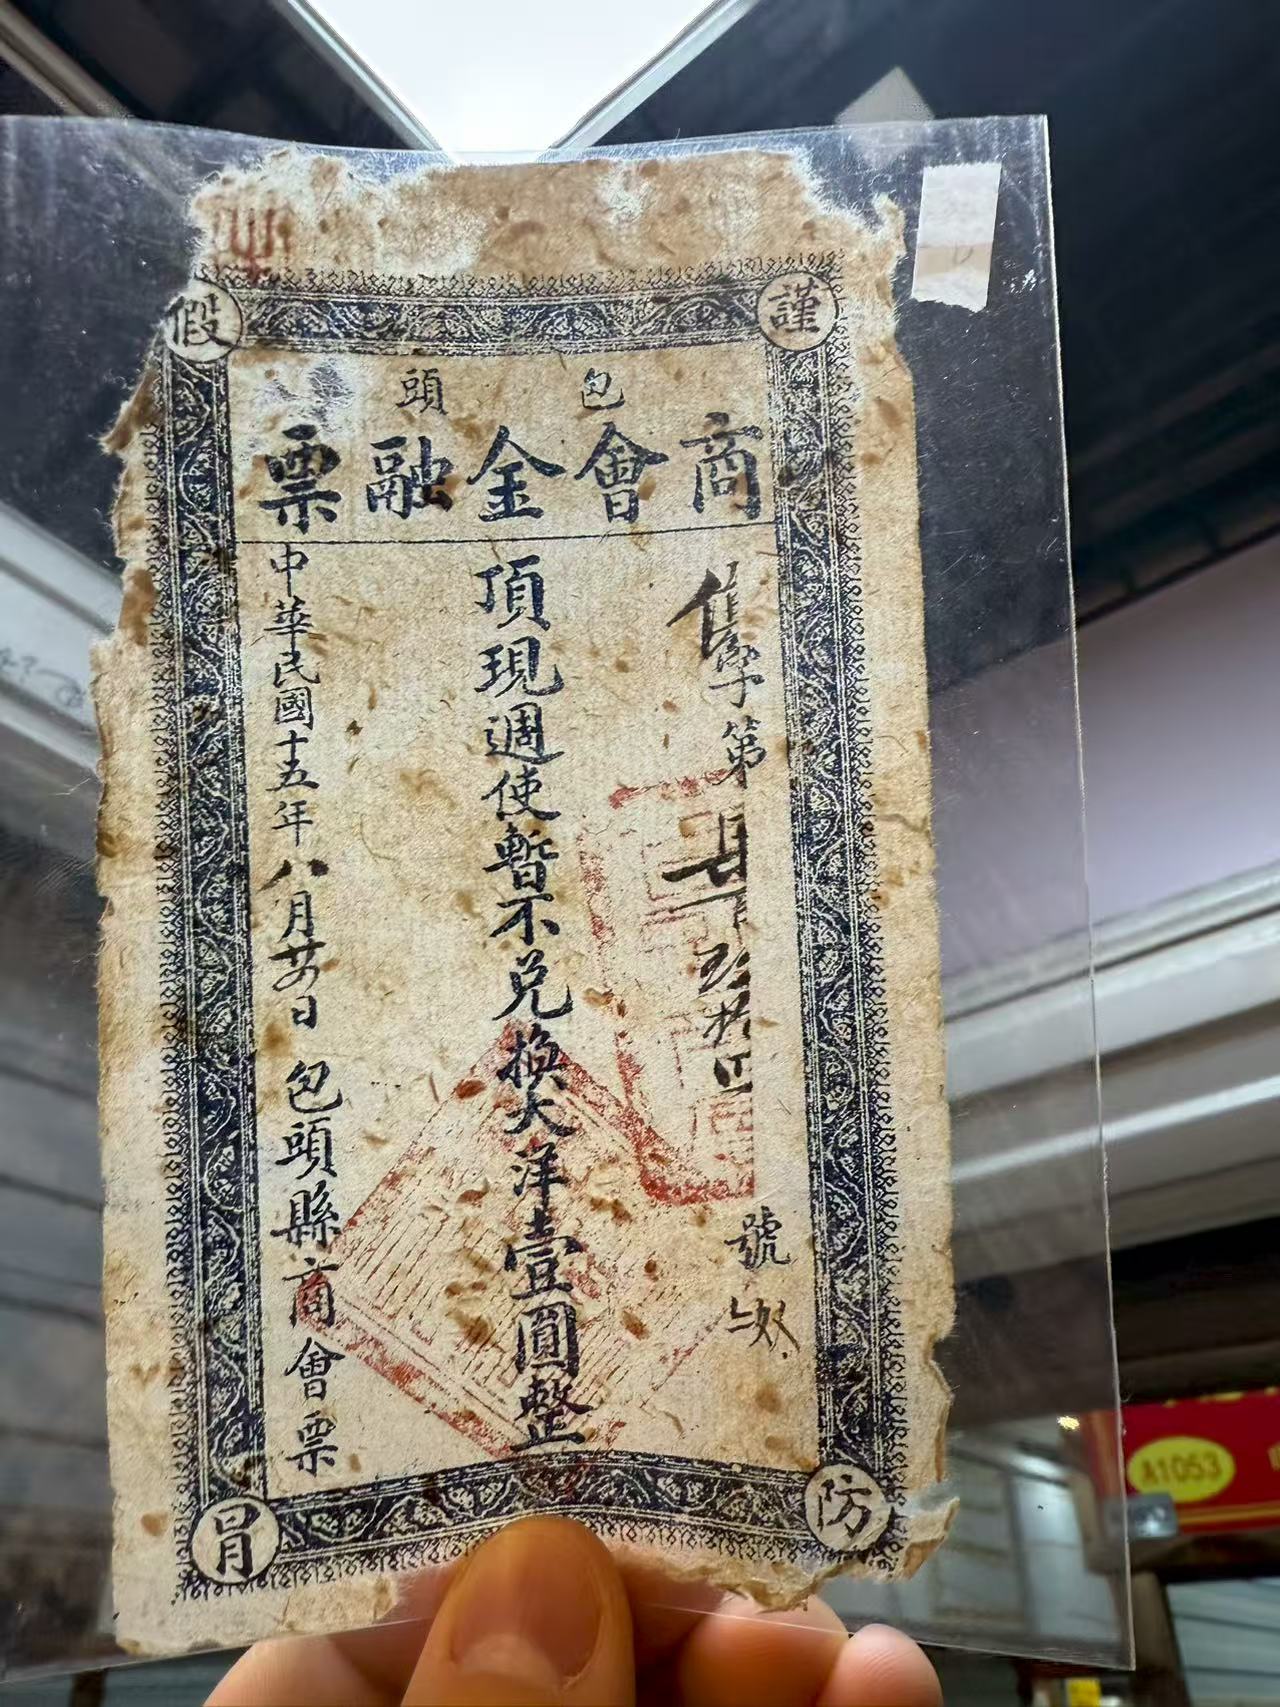 謹防假冒
包頭
商會金融票
隻字第
號
頂現週使暫不兑換大洋壹圓整
中華民國十五年八月廿四日 包頭縣商會票
A1053